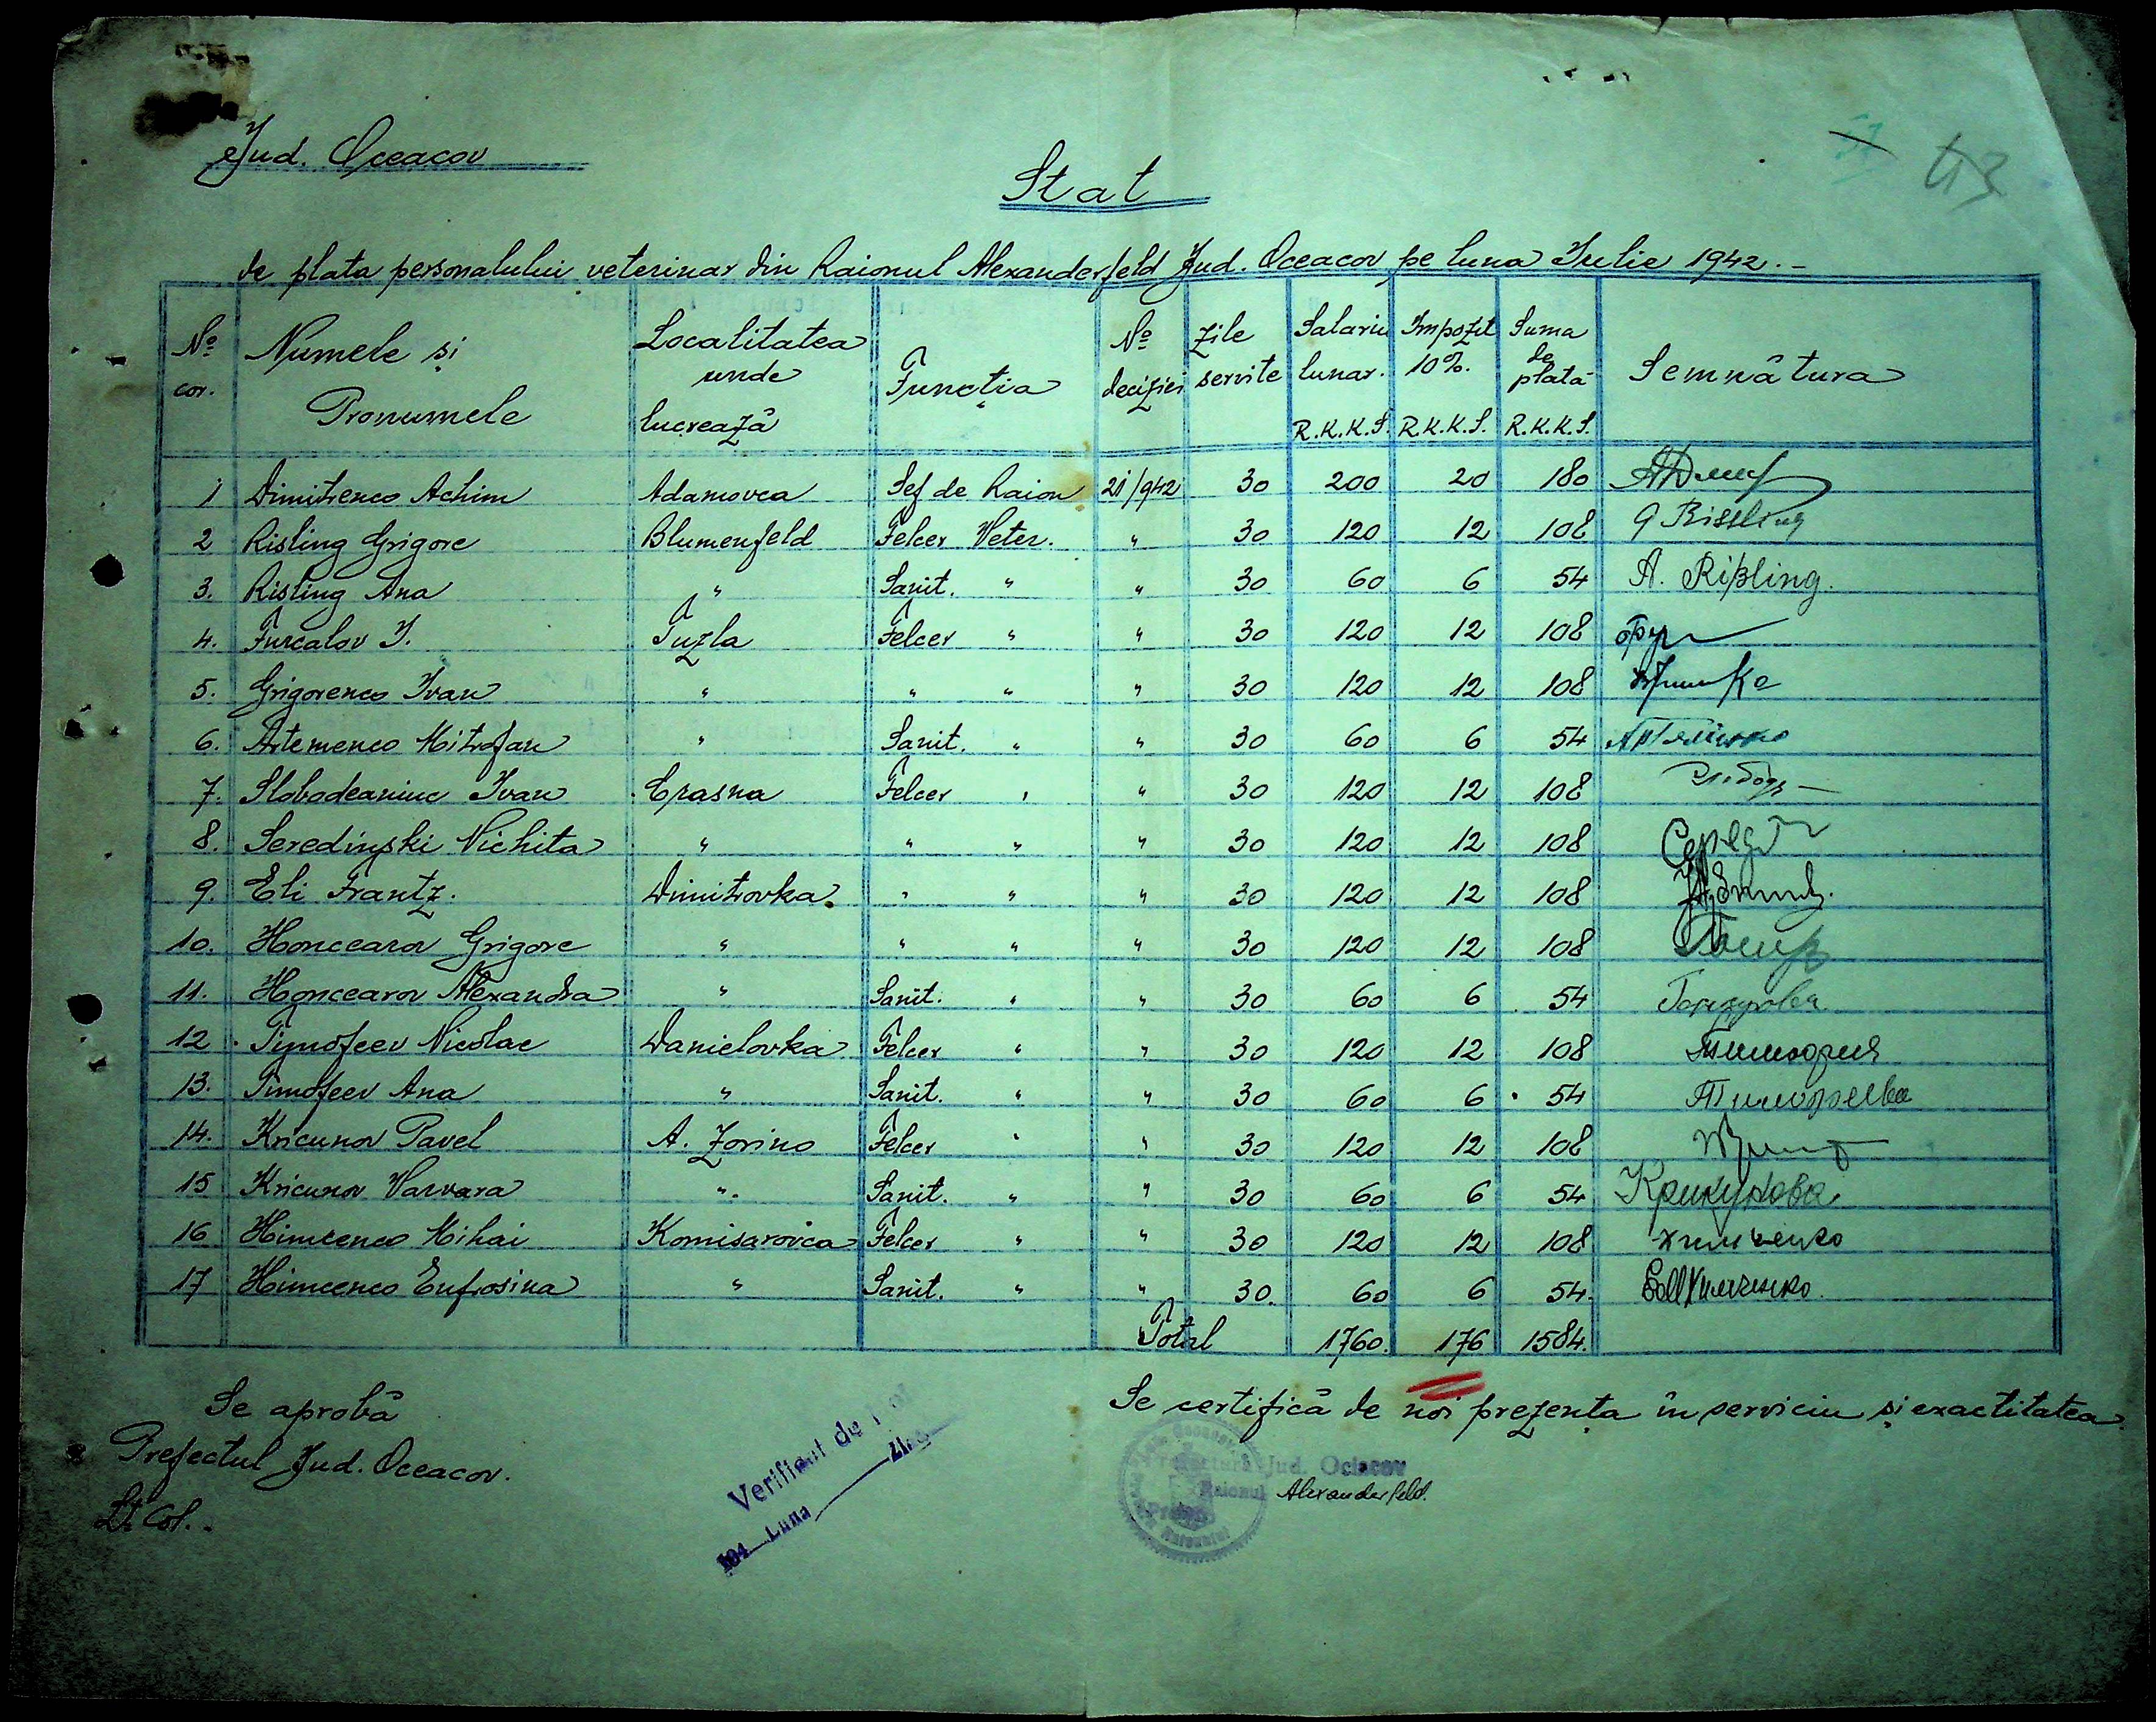 Jud. Oceacov
43
Stat
de plata personalului veterinar din Raionul Alexanderfeld Jud. Oceacov pe luna Iulie 1942.-
No cor. Numele și Pronumele Localitatea unde lucrează Funcția No deciziei Zile servite Salariu lunar. R.K.K.S. Impozit 10%. R.K.K.S. Suma de plată R.K.K.S. Semnătura
1 Dimitrenco Achim Adamovca Șef de Raion 21/942 30 200 20 180
2 Risling Grigore Blumenfeld Felcer Veter. " 30 120 12 108 G Rissling
3. Risling Ana " Sanit. " " 30 60 6 54 A. Rißling.
4. Furcalov I. Tuzla Felcer " " 30 120 12 108
5. Grigorenco Ivan " " " " 30 120 12 108
6. Artemenco Mitrofan " Sanit. " " 30 60 6 54
7. Slobodeaniuc Ivan Crasna Felcer " " 30 120 12 108
8. Seredinski Nichita " " " " 30 120 12 108
9. Eli Frantz. Dimitrovka. " " " 30 120 12 108
10. Honcearov Grigore " " " " 30 120 12 108
11. Honcearov Alexandra " Sanit. " " 30 60 6 54
12 Timofeev Nicolae Danielovka Felcer " " 30 120 12 108
13. Timofeev Ana " Sanit. " " 30 60 6 54
14. Kricunov Pavel A. Zorino Felcer " " 30 120 12 108
15 Kricunov Varvara " Sanit. " " 30 60 6 54 Крикунова
16 Himcenco Mihai Komisarovca Felcer " " 30 120 12 108 Химченко
17 Himcenco Eufrosina " Sanit. " " 30. 60 6 54. Химченко.
Total 1760. 176 1584.
Se aprobă
Prefectul Jud. Oceacov.
Lt. Col.
Verificat de
194 Luna Ziua
Se certifică de noi prezența in serviciu și exactitatea
Prefectura Jud. Ociacov
Raionul Alexanderfeld.